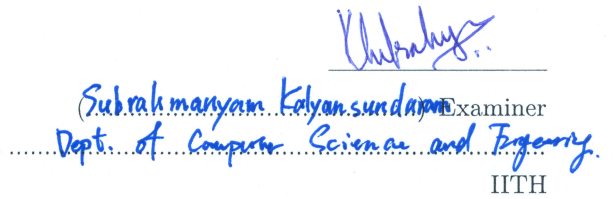 (Subrahmanyam Kalyansundaram) Examiner
Dept. of Computer Science and Engineering.
IITH